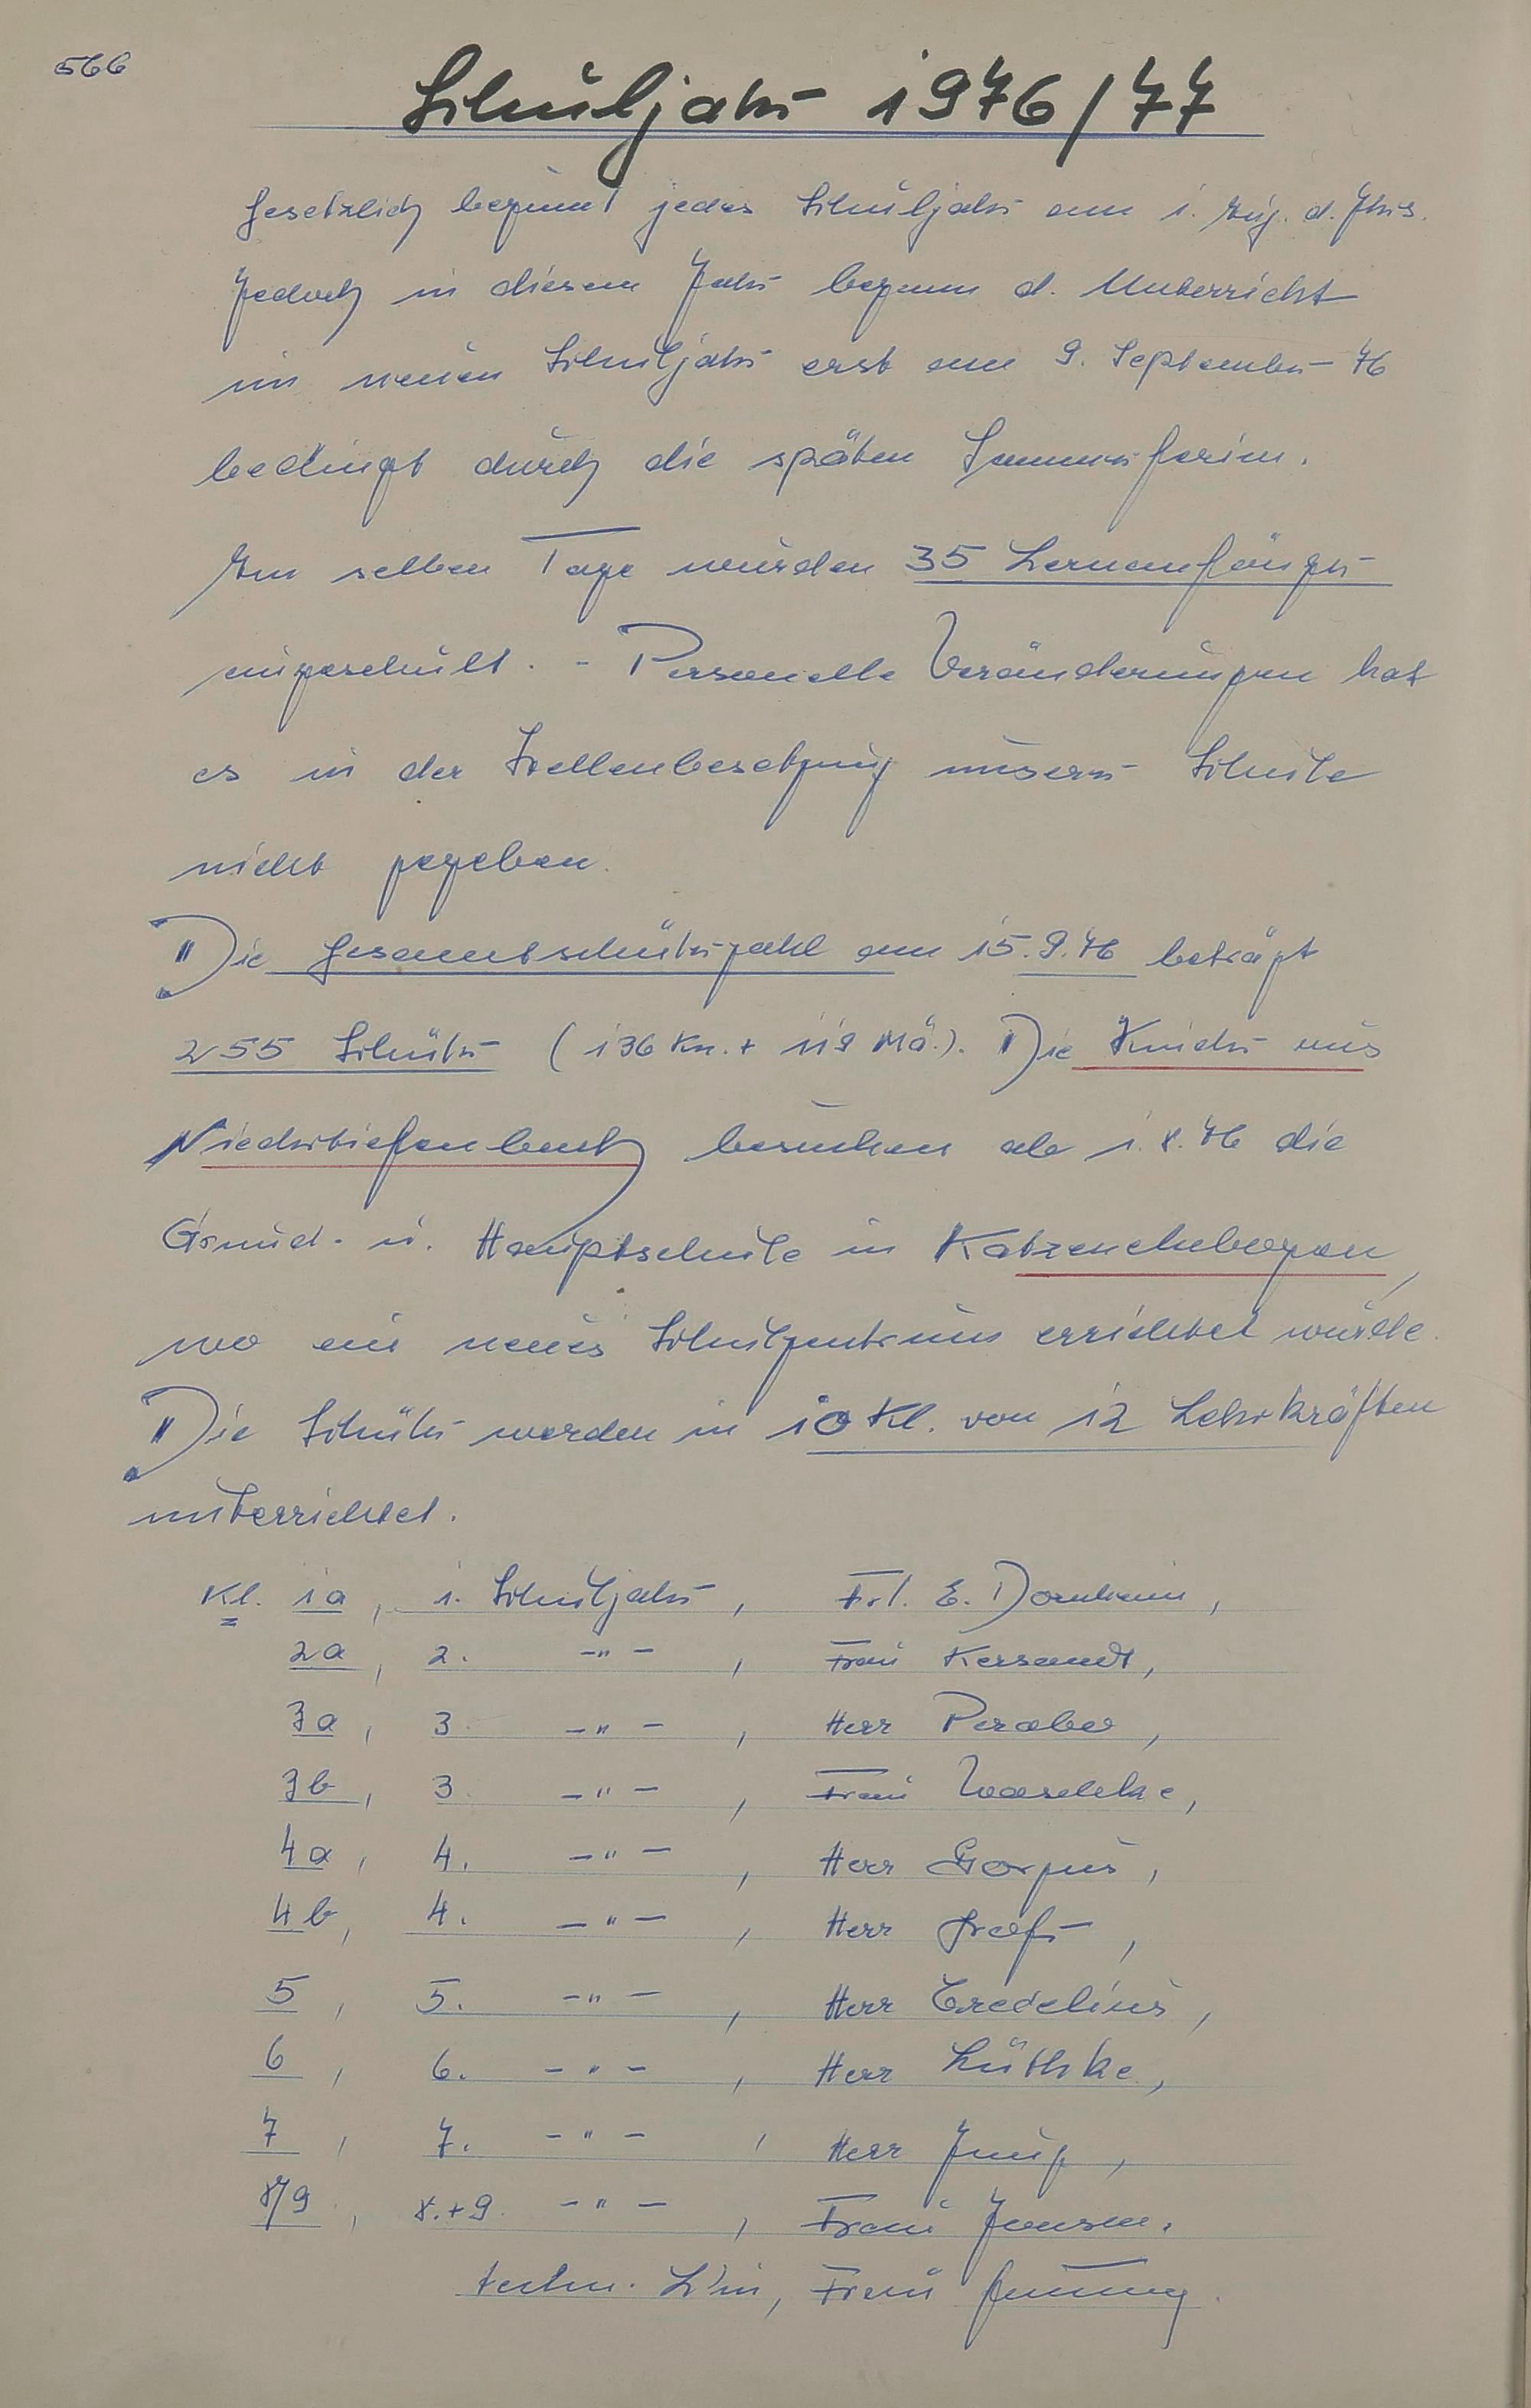 566
Schuljahr 1976/77
Gesetzlich beginnt jedes Schuljahr am 1. Aug. d. Jhrs.
Jedoch in diesem Jahr begann d. Unterricht
im neuen Schuljahr erst am 9. September 76
bedingt durch die späten Sommerferien.
Am selben Tage wurden 35 Lernanfänger
eingeschult. - Personelle Veränderungen hat
es in der Stellenbesetzung unserer Schule
nicht gegeben.
Die Gesamtschülerzahl am 15.9.76 beträgt
255 Schüler (136 Kn. + 119 Mä.). Die Kinder aus
Niedertiefenbach besuchen ab 1.8.76 die
Grund- u. Hauptschule in Katzenelnbogen,
wo ein neues Schulzentrum errichtet wurde.
Die Schüler werden in 10 Kl. von 12 Lehrkräften
unterrichtet.
Kl. 1a, 1. Schuljahr, Frl. E. Dornheim,
2a, 2. -"-, Frau Kersandt,
3a, 3. -"-, Herr Perabo,
3b, 3. -"-, Frau Waschke,
4a, 4. -"-, Herr Gorpus,
4b, 4. -"-, Herr Gräf,
5, 5. -"-, Herr Credelius,
6, 6. -"-, Herr Lüthke,
7, 7. -"-, Herr Jung,
8/9, 8.+9. -"-, Frau Jansen.
techn. L'in, Frau